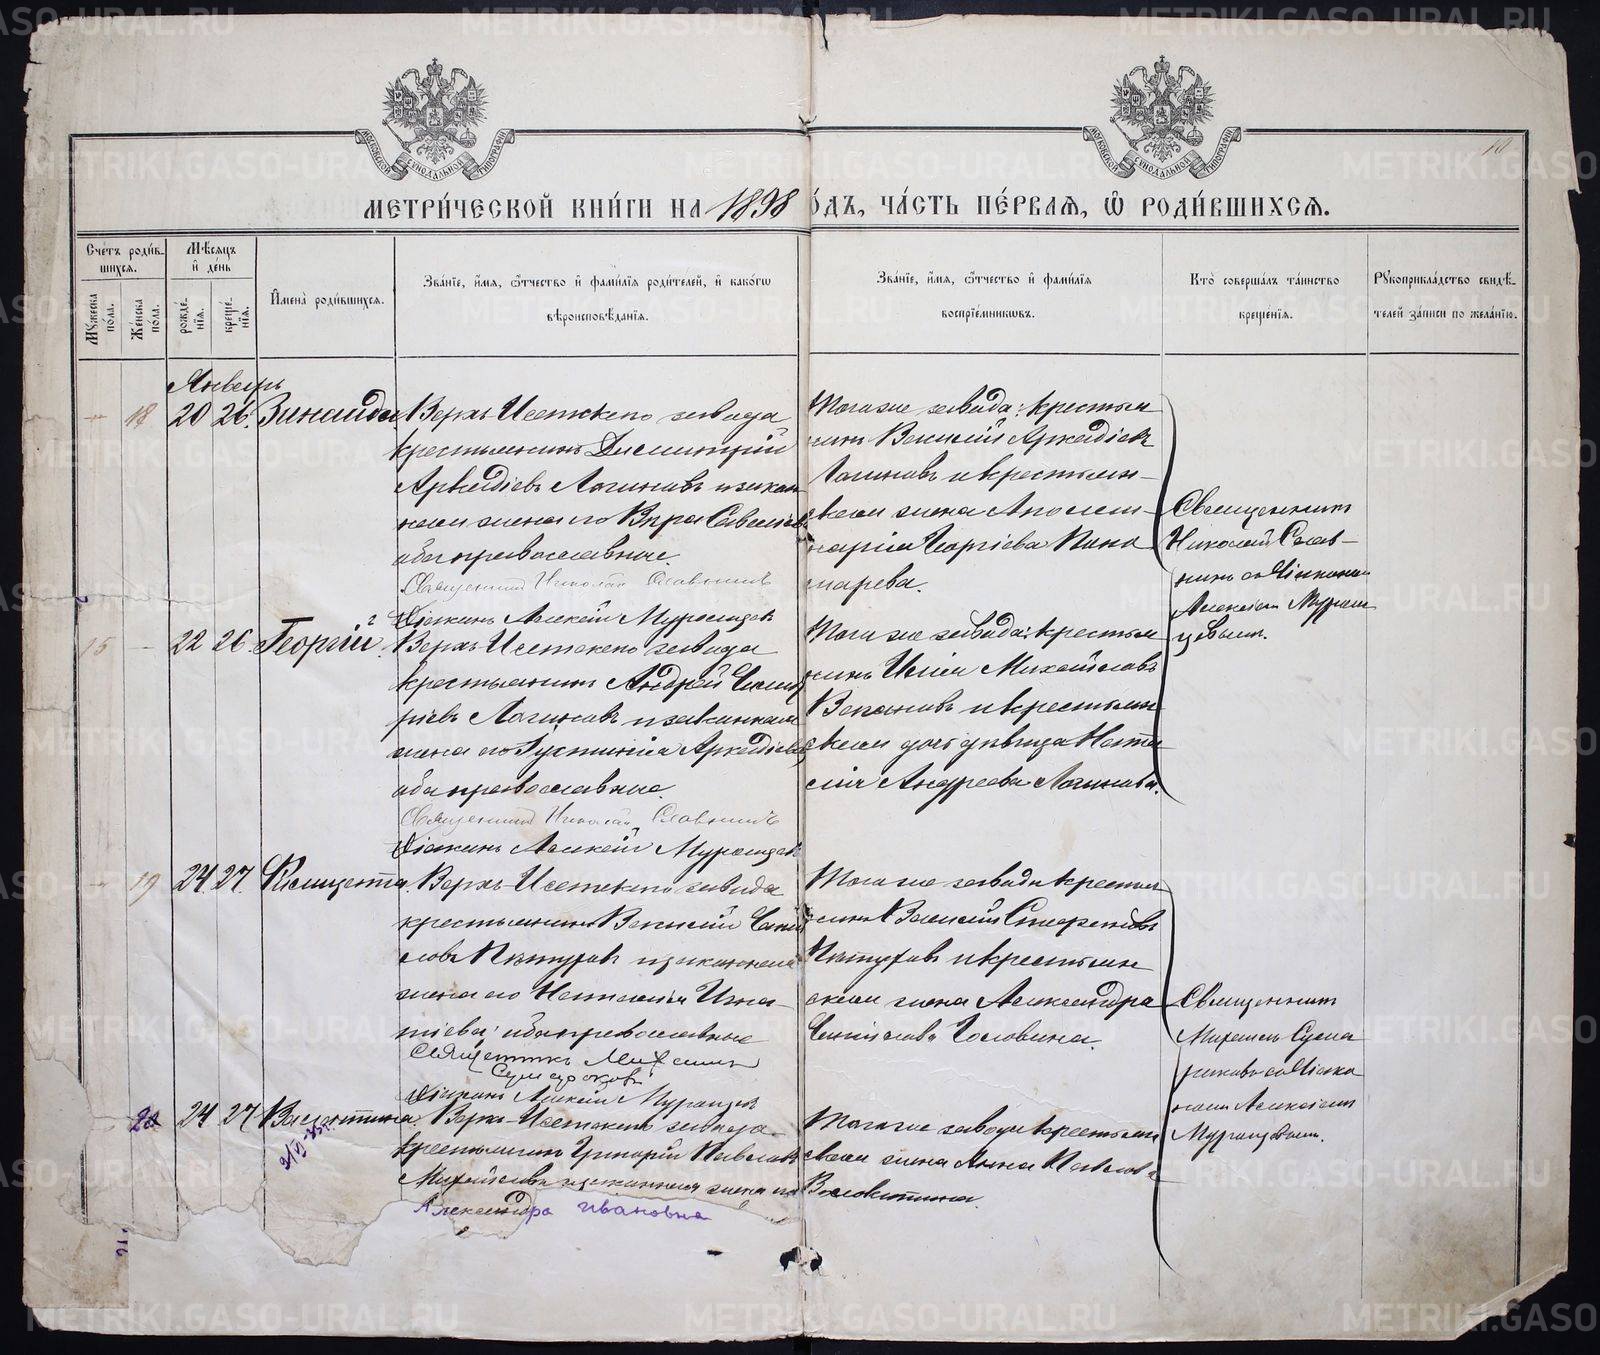 МЕТРИ́ЧЕСКОЙ КНИ́ГИ НА 1898 ГО́ДЪ, ЧА́СТЬ ПЕ́РВАЯ, Ѡ РОДИ́ВШИХСЯ.
10
Сче́тъ роди́в-
шихся.
Му́жеска по́ла.
Же́нска по́ла.
Мѣ́сяцъ
и де́нь
рожде́-
нїя.
креще́-
нїя.
Имена̀ роди́вшихся.
Зва́нїе, и́мя, ѻ҆́тчество и фами́лїя роди́телей, и како́гѡ
вѣроисповѣ́данїя.
Зва́нїе, и́мя, ѻ҆́тчество и фами́лїя
воспрїе́мникѡвъ.
Кто̀ соверша́лъ та́инство
креще́нїя.
Рукоприкла́дство свидѣ́-
телей за́писи по жела́нїю.
Январь
18 20 26. Зинаида
Верхъ-Исетскаго завода
крестьянинъ Димитрій
Аркадіевъ Логиновъ и закон-
ная жена его Вѣра Савельева
оба православные.
Священникъ Николай Славнинъ
Діаконъ Алексѣй Мурашцевъ
Того же завода: крестья
нинъ Василій Аркадіевъ
Логиновъ и крестьян-
ская жена Аполли-
нарія Георгіева Поно
марева.
Священникъ
Николай Слав-
нинъ съ Діакономъ
Алексѣемъ Мураш
цевымъ.
15 - 22 26 Георгій
Верхъ-Исетскаго завода
крестьянинъ Андрей Димит
ріевъ Логиновъ и законная
жена его Іустинія Аркадіева
оба православные.
Священникъ Николай Славнинъ
Діаконъ Алексѣй Мурашцевъ
Того же завода: крестья
нинъ Илія Михайловъ
и крестьян
ская дочь дѣвица Ната
лія Андреева Логинова.
19 24 27.
Верхъ-Исетскаго завода
крестьянинъ Василій
Пѣтуховъ и законная
жена его Наталія Игна-
тіева; оба православные
Священникъ Михаилъ
Діаконъ Алексѣй Мурашцевъ
Того же завода крестья
нинъ Василій Стефановъ
Пѣтуховъ и крестьян
ская жена Александра
Головина.
Священникъ
Михаилъ
съ Діако
номъ Алексѣемъ
Мурашцевымъ.
20 24 27 Валентина.
Верхъ-Исетскаго завода
крестьянинъ Григорій Павловъ
Михайловъ и законная жена его
Александра Ивановна
Того же завода крестьян
ская жена Анна Павлова